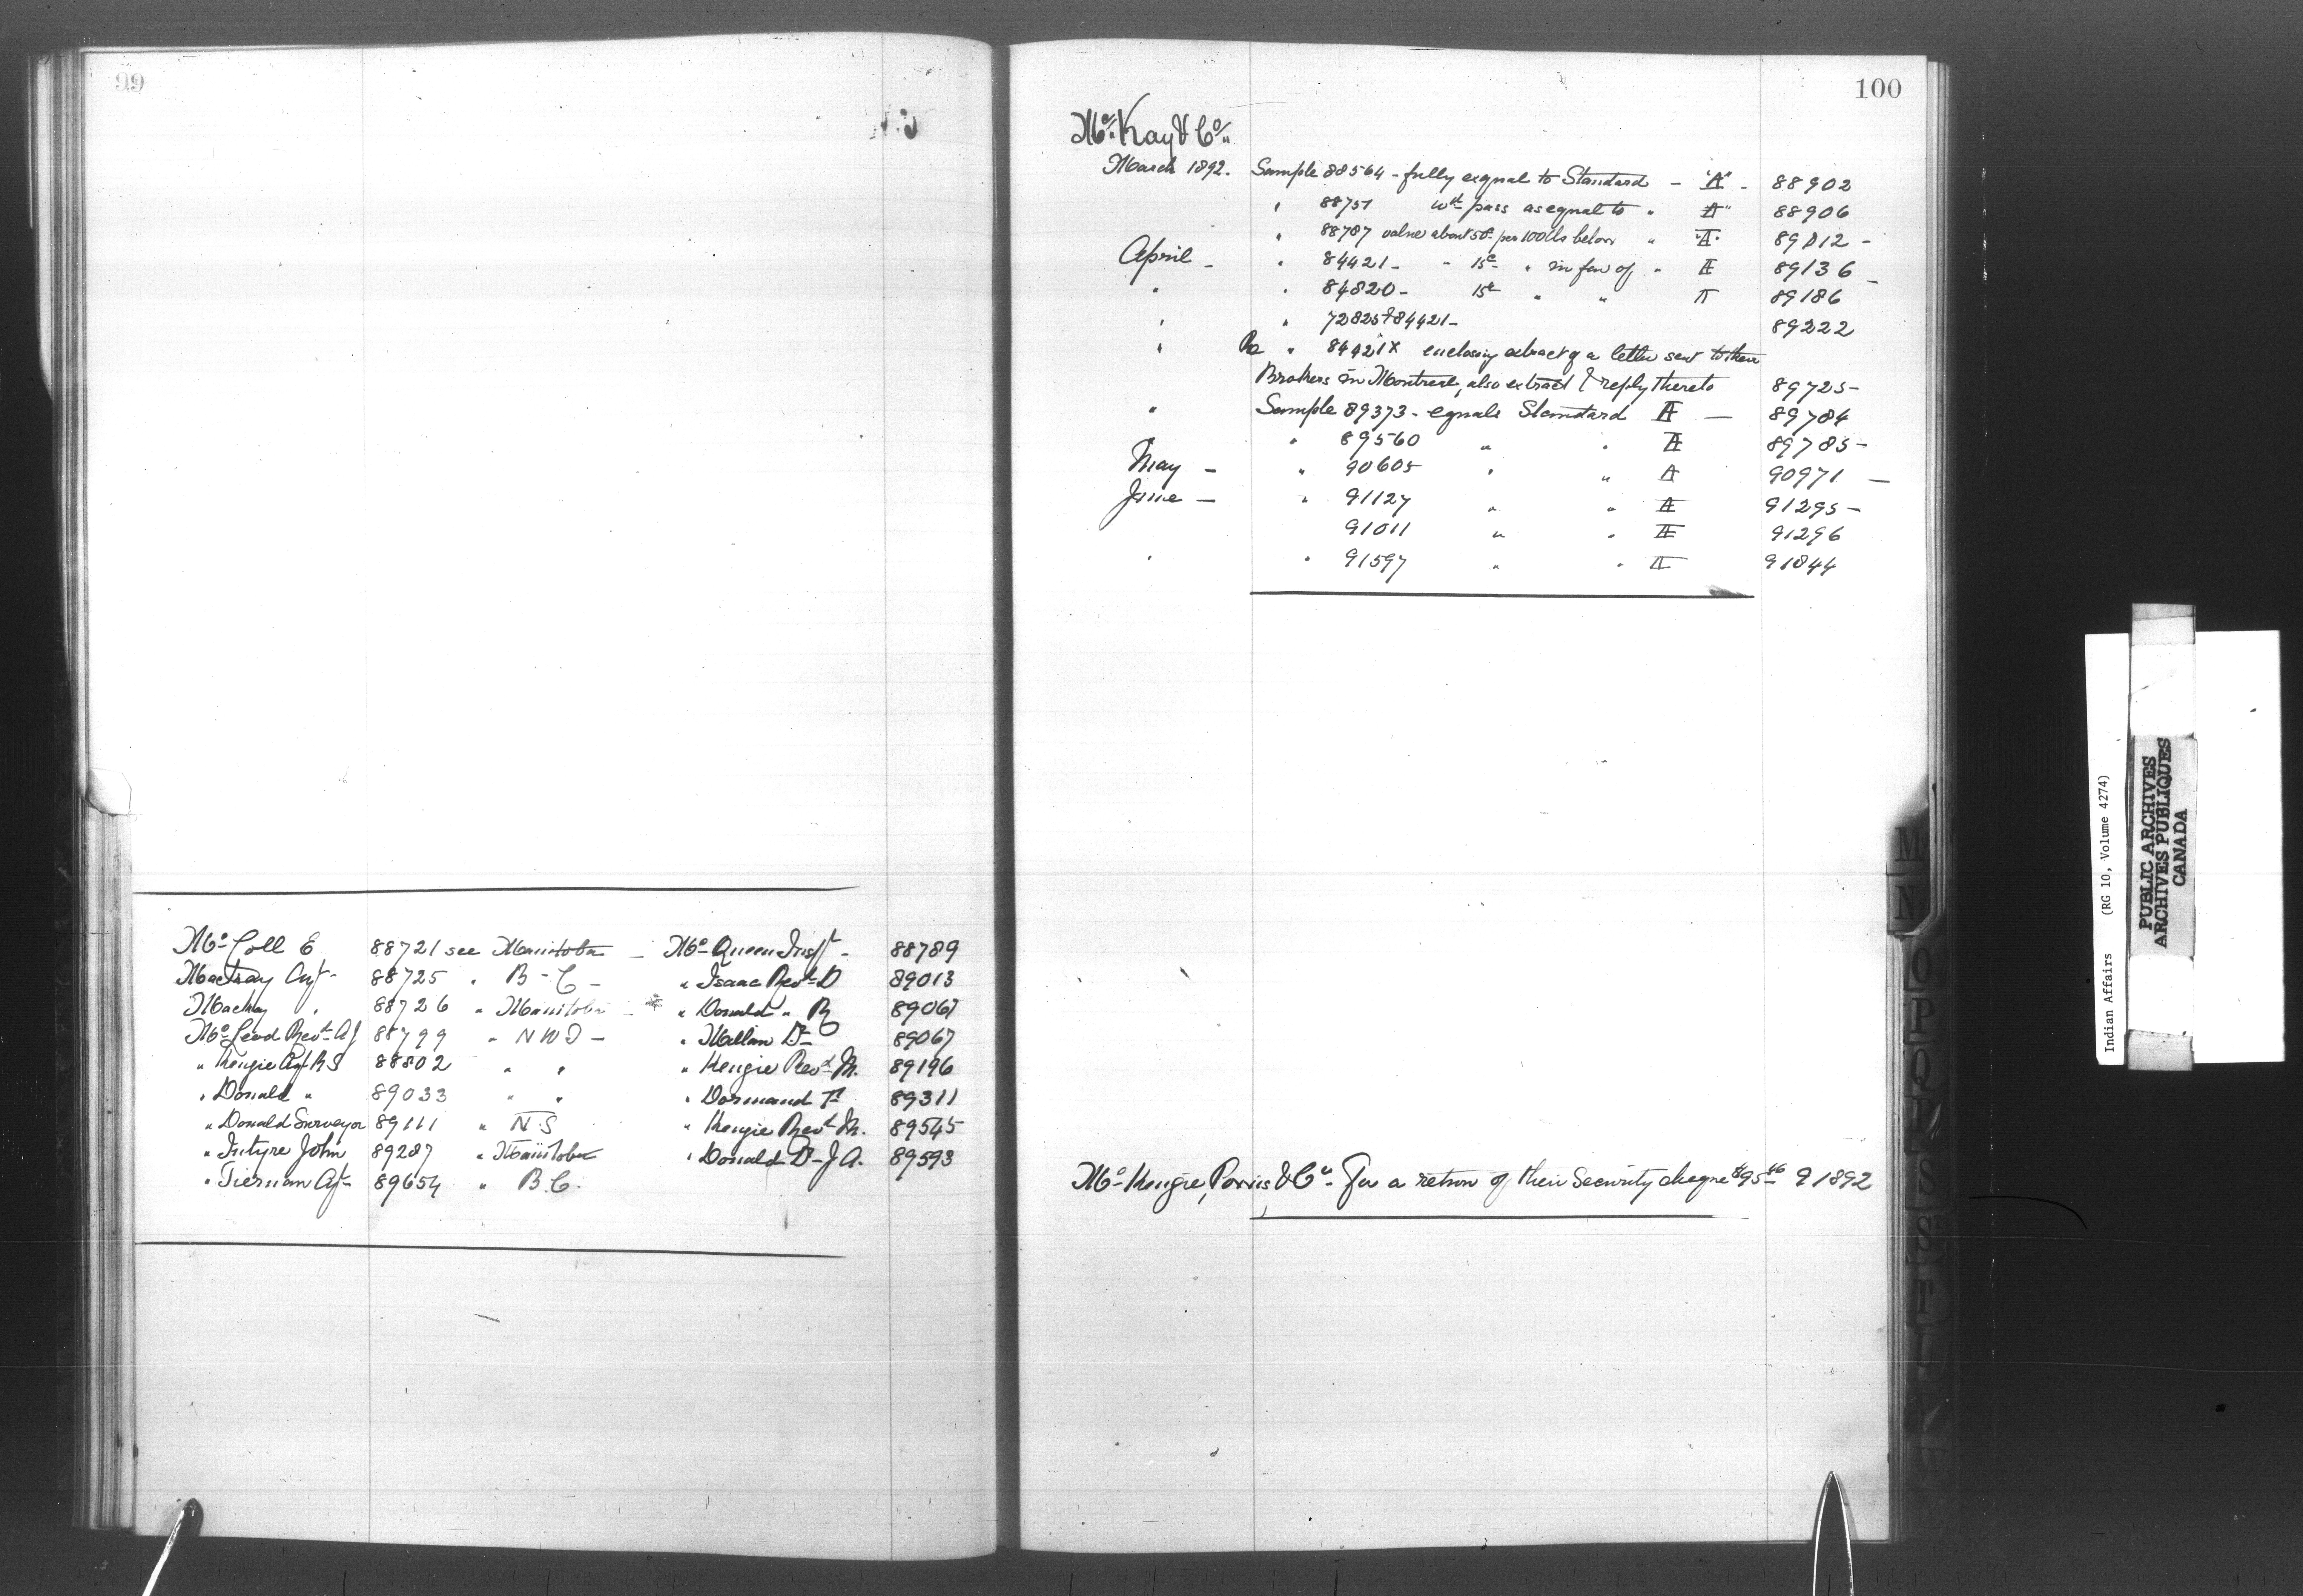 99
McColl E 88721 see Manitoba - McQueen Insp. - 88789
Mackay Agt - 88725 " B-C- " Isaac Revd D 89013
Mackay " 88726 " Manitoba " Donald " R 89067
McLeod Revd AJ 88799 " NWT- " Mellan Dr 89067
" Kenzie Agt RS 88802 " " " Kenzie Revd M. 89196
" Donald " 89033 " " " Dormand F 89311
" Donald Surveyor 89111 " NS " Kenzie Revd M. 89545
" Intyre John 89287 " Manitoba " Donald Dr J A. 89593
" Tiernan Agt 89654 " B.C.
100
McKay & Co
March 1892. Sample 88564 - fully eqnal to Standard - "A" - 88902
" 88751 wd pass as equal to " A" 88906
" 88787 value about 5c per 100 lbs below " "A" 89012 -
April - " 84421 - " 15c " in fav of " A 89136 -
" " 84820 - 15c " " A 89186
" " 72825 & 84421 - 89222
" Re " 84421 x enclosing extract of a letter sent to their
Brokers in Montreal, also extract of reply thereto 89725 -
" Sample 89373 - equals Standard A - 89784
" 89560 " " A 89785 -
May - " 90605 " " A 90971 -
June - " 91127 " " A 91295 -
91011 " " A 91296
" " 91597 " " A 91844
McKenzie, & Co For a return of their Security cheque $95 91892
M
N
O
P
Q
R
S
S
T
Indian Affairs (RG 10, Volume 4274)
PUBLIC ARCHIVES
ARCHIVES PUBLIQUES
CANADA